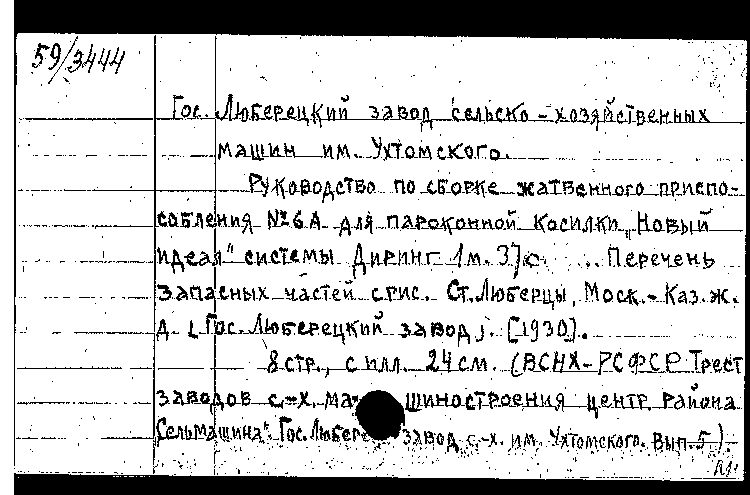 59/3444
Гос. Люберецкий завод сельско-хозяйственных
машин им. Ухтомского.
Руководство по сборке жатвенного приспо-
собления №6А для пароконной косилки „Новый
идеал" системы Диринг 1м. 37с ... Перечень
запасных частей с рис. Ст. Люберцы, Моск.-Каз. ж.
д. [Гос. Люберецкий завод]. [1930].
8 стр., с илл. 24 см. (ВСНХ-РСФСР Трест
заводов с.-х. ма- шиностроения центр. района
„Сельмашина". Гос. Любер завод с.-х. им. Ухтомского. Вып. 5).